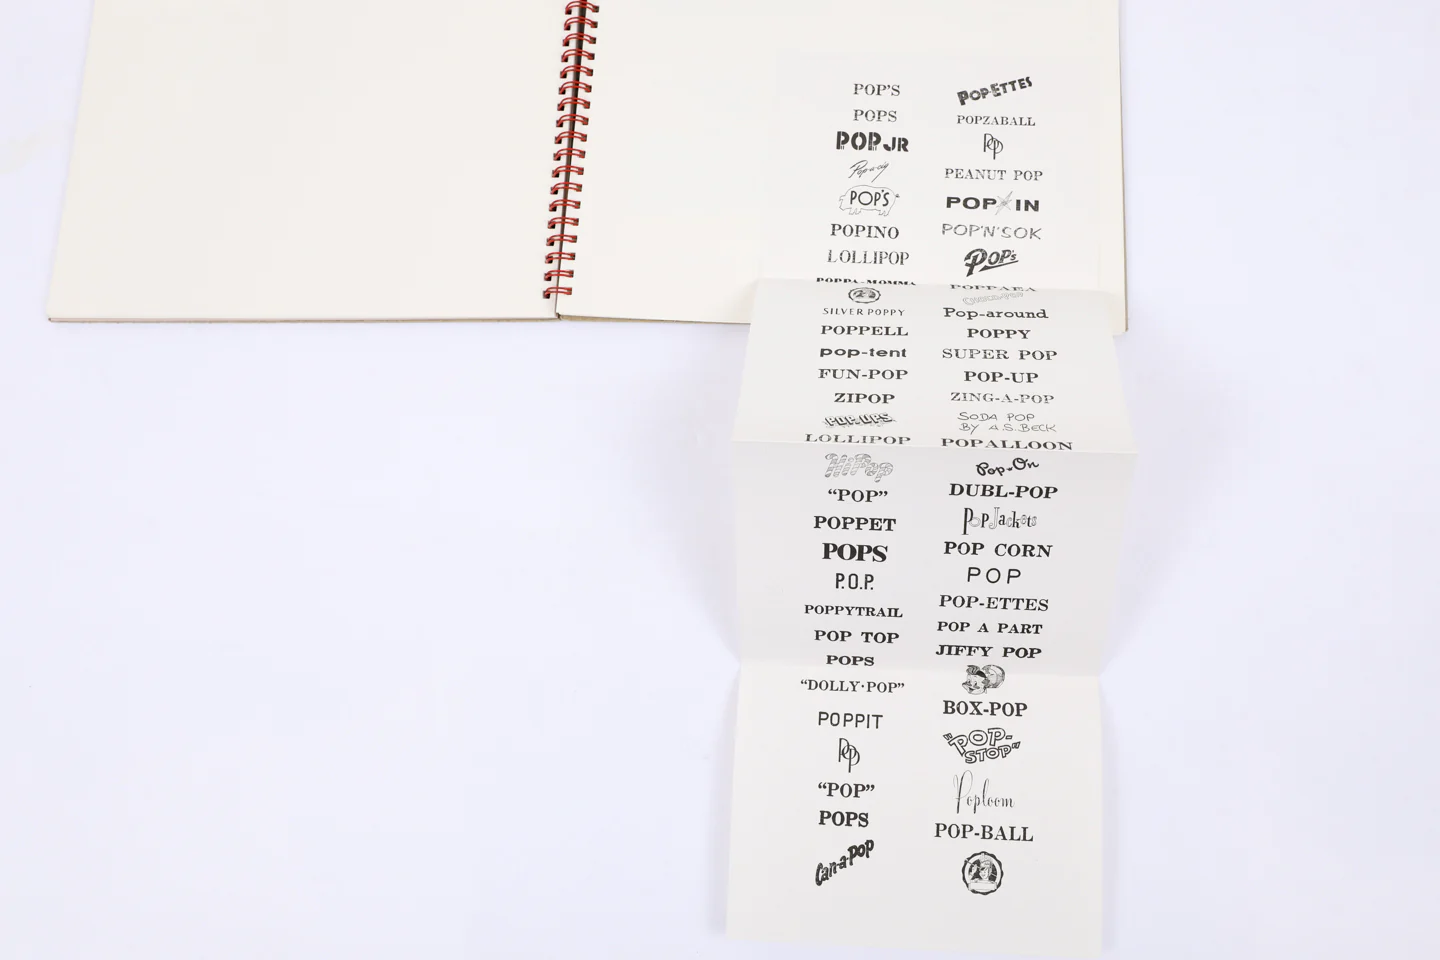 POP'S
POPS
POP JR
Pop-a-cig
POP'S
POPINO
LOLLIPOP
POPPA-MOMMA
SILVER POPPY
POPPELL
pop-tent
FUN-POP
ZIPOP
POP-UPS
LOLLIPOP
HiPop
“POP”
POPPET
POPS
P.O.P.
POPPYTRAIL
POP TOP
POPS
“DOLLY·POP”
POPPIT
Pop
“POP”
POPS
Can-a-Pop
POP-ETTES
POPZABALL
Pop
PEANUT POP
POP IN
POP'N'SOK
POP's
POPPAEA
Pop-around
POPPY
SUPER POP
POP-UP
ZING-A-POP
SODA POP
BY A.S. BECK
POPALLOON
Pop-On
DUBL-POP
PopJackets
POP CORN
POP
POP-ETTES
POP A PART
JIFFY POP
BOX-POP
“POP-
STOP”
Poploom
POP-BALL